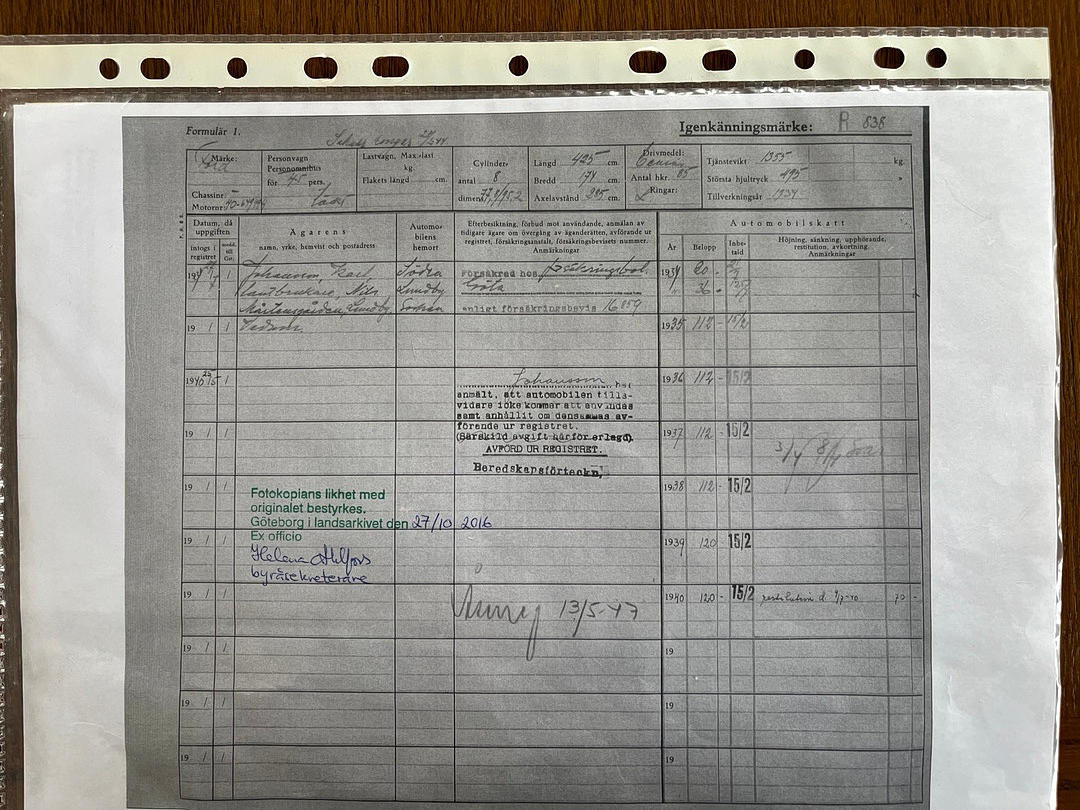 Formulär 1.
Igenkänningsmärke: R 838
Märke:
Ford
Chassinr
Motornr
Personvagn
Personomnibus
för 45 pers.
Lastvagn, Max.-last
kg.
Flakets längd cm.
Cylinder-
antal 8
dimens.
Längd 425 cm.
Bredd 174 cm.
Axelavstånd 285 cm.
Drivmedel:
Antal hkr. 85
Ringar:
L
Tjänstevikt 1355 kg.
Största hjultryck 495 "
Tillverkningsår 1934
Datum, då
uppgiften
intogs i
registret
Ägarens
namn, yrke, hemvist och postadress
Automo-
bilens
hemort
Efterbesiktning, förbud mot användande, anmälan av
tidigare ägare om övergång av äganderätten, avförande ur
registret, försäkringsanstalt, försäkringsbevisets nummer.
Anmärkningar
Automobilskatt
År
Belopp
Inbe-
tald
Höjning, sänkning, upphörande,
restitution, avkortning.
Anmärkningar
Johansson, Karl
lantbrukare, Nils
Mårtensgården, Lundby,
Vedum.
Södra
Lundby
Socken
Försäkrad hos Försäkringsbol.
Göta
enligt försäkringsbevis 16859
1934 20 -
" 36 -
19 / /
1935 112 - 15/2
1940 25/5 /
Johansson har
anmält, att automobilen tills-
vidare icke kommer att användas
samt anhållit om densammas av-
förande ur registret.
(Särskild avgift härför erlagd).
AVFÖRD UR REGISTRET.
Beredskapsförteckn.
1936 112 - 15/2
19 / /
1937 112 - 15/2
19 / /
1938 112 - 15/2
Fotokopians likhet med
originalet bestyrkes.
Göteborg i landsarkivet den 27/10 2016
Ex officio
Helena Ahlfors
byråsekreterare
19 / /
1939 120 15/2
19 / /
13/5-47
1940 120 - 15/2 restitution d. 9/7-40 70 -
19 / /
19
19 / /
19
19 / /
19